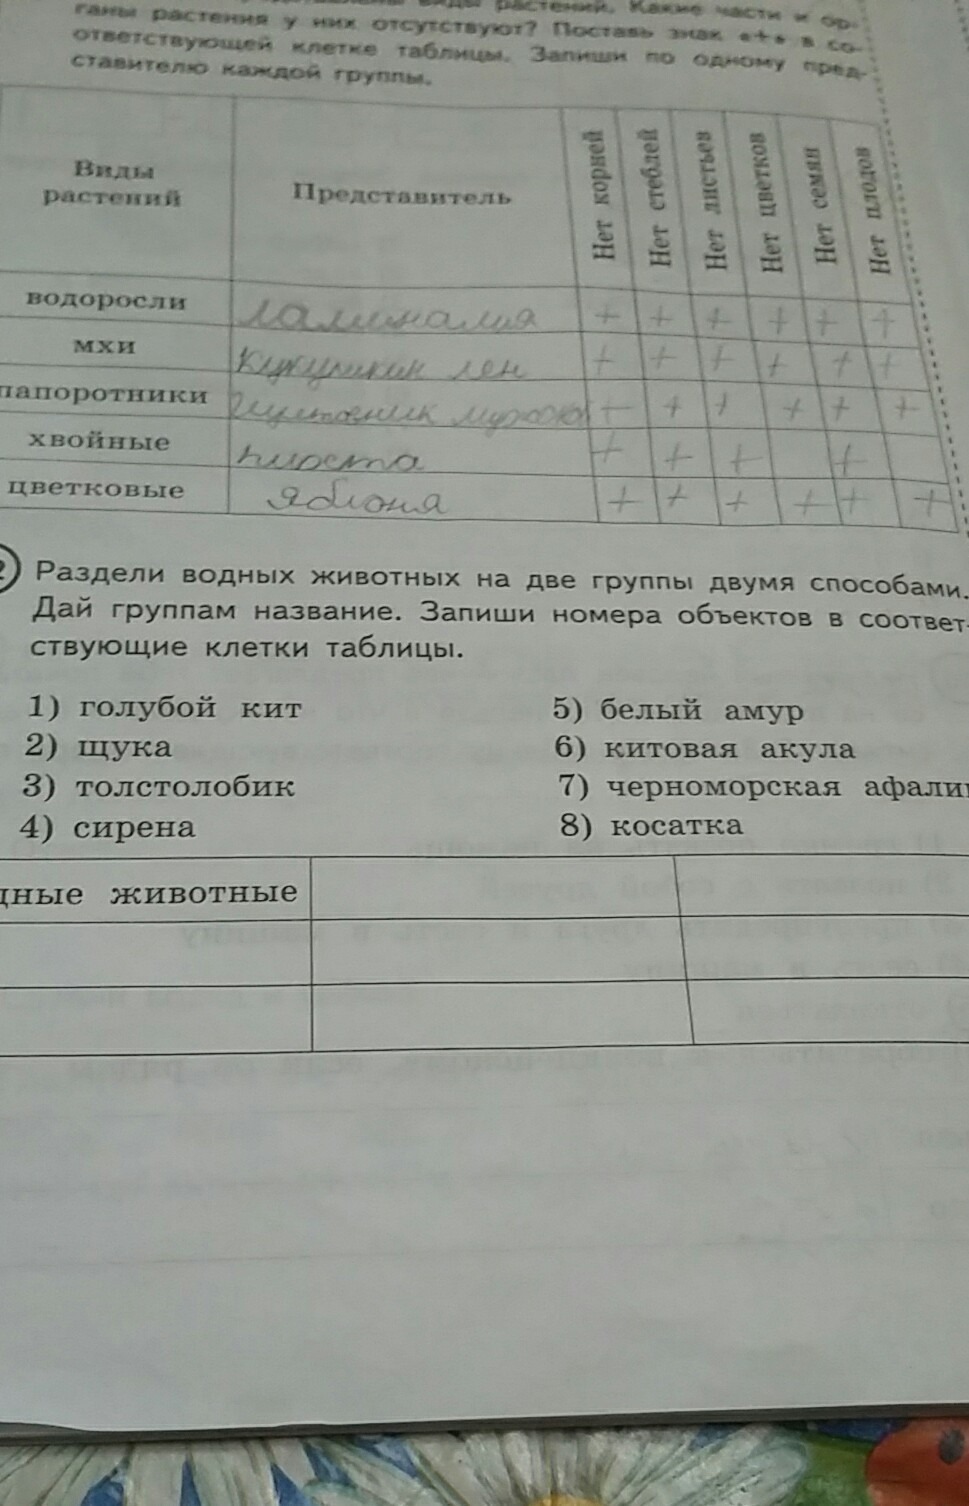 виды растений. Какие части и ор-
ганы растения у них отсутствуют? Поставь знак «+» в со-
ответствующей клетке таблицы. Запиши по одному пред-
ставителю каждой группы.
Виды растений Представитель Нет корней Нет стеблей Нет листьев Нет цветков Нет семян Нет плодов
водоросли + + + + + +
мхи Кукушкин лен + + + + + +
папоротники + + + + + +
хвойные + + + +
цветковые яблоня + + + + + +
Раздели водных животных на две группы двумя способами.
Дай группам название. Запиши номера объектов в соответ-
ствующие клетки таблицы.
1) голубой кит
2) щука
3) толстолобик
4) сирена
5) белый амур
6) китовая акула
7) черноморская афали
8) косатка
дные животные